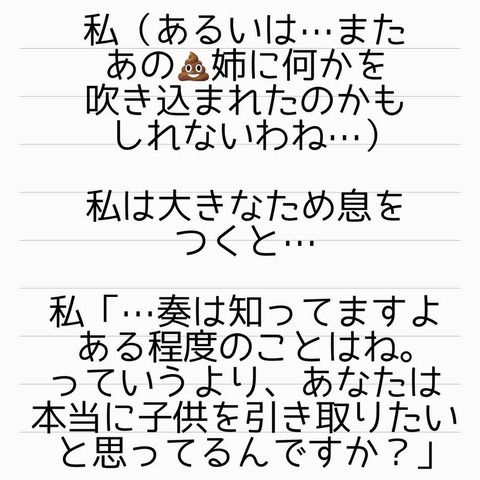 私（あるいは…また
あの💩姉に何かを
吹き込まれたのかも
しれないわね…）
私は大きなため息を
つくと…
私「…奏は知ってますよ
ある程度のことはね。
っていうより、あなたは
本当に子供を引き取りたい
と思ってるんですか？」